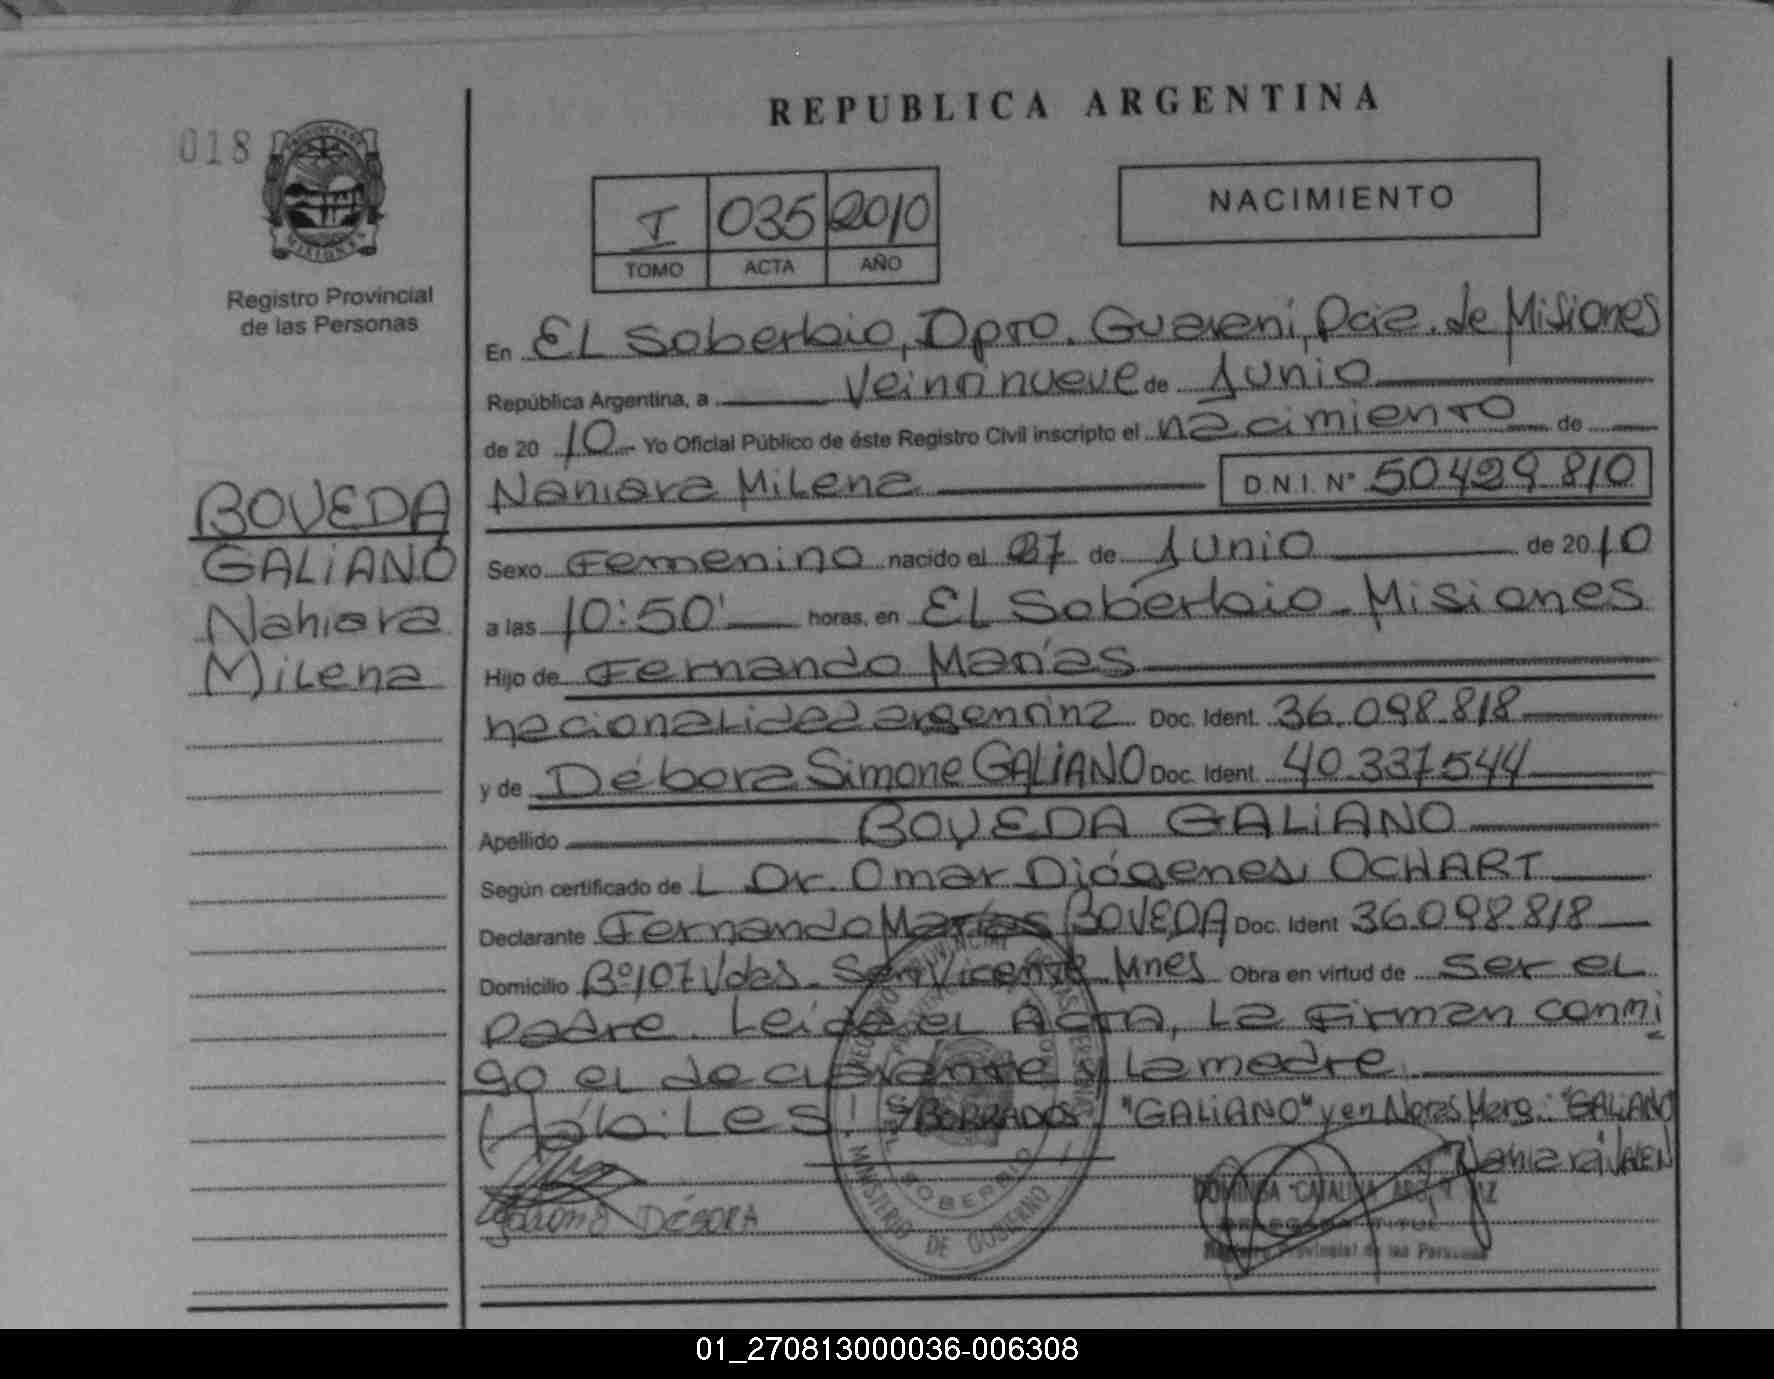 REPUBLICA ARGENTINA
018
NACIMIENTO
I 035 2010
TOMO ACTA AÑO
Registro Provincial
de las Personas
BOVEDA
GALIANO
Nahiara
Milena
En EL Soberbio, Dpto. Guarani, Pcia. de Misiones
República Argentina, a Veintinueve de Junio
de 20 10 Yo Oficial Público de éste Registro Civil inscripto el nacimiento de
Nahiara Milena D.N.I. N° 50429810
Sexo Femenino nacido el 27 de Junio de 20 10
a las 10:50' horas, en EL Soberbio - Misiones
Hijo de Fernando Matías
nacionalidad argentina Doc. Ident. 36.098.818
y de Débora Simone GALIANO Doc. Ident. 40.337.544
Apellido BOVEDA GALIANO
Según certificado de L Dr. Omar Diógenes OCHART
Declarante Fernando Matías BOVEDA Doc. Ident 36.098.818
Domicilio B° 107 Vdas. San Vicente Mnes Obra en virtud de ser el
padre. Leida el Acta, La Firman conmi
go el declarante y la madre
Hábiles! S/BORRADOS "GALIANO" y en Notas Marg.: "GALIANO
Nahiara
DÉBORA
DOMINGA CATALINA
Registro Provincial de las Personas
REGISTRO PROVINCIAL DE LAS PERSONAS
SOBERBIO
MINISTERIO DE GOBIERNO
01_270813000036-006308